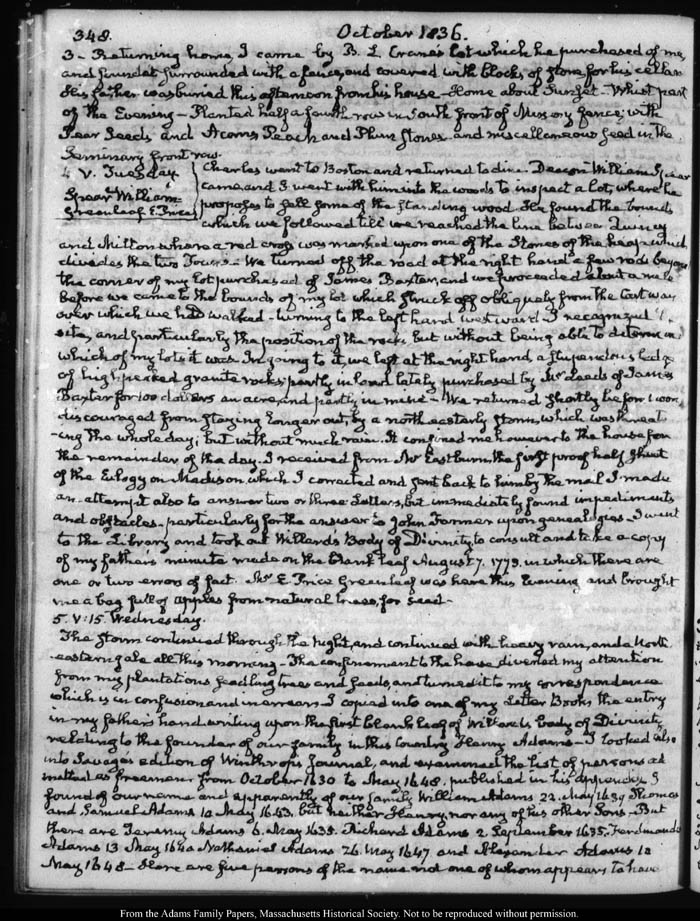 348. October 1836.
3 – Returning home, I came by B. L. Crane's lot which he purchased of me,
and found it surrounded with a fence, and covered with blocks of stone for his cellar
His father was buried this afternoon from his house – Home about Sunset – Whist part
of the Evening – Planted half a fourth row in South front of Nursery fence; with
Pear Seeds and Acorns, Peach and Plum stones and miscellaneous seed in the
Seminary front row.
4. V. Tuesday
Spear William
Greenleaf E. Price
Charles went to Boston and returned to dine. Deacon William Spear
came and I went with him into the woods to inspect a lot, where he
proposes to sell some of the standing wood. He found the bounds
which we followed till we reached the line between Quincy
and Milton where a red cross was marked upon one of the Stones of the heap which
divides the two Towns – We turned off the road at the right hand a few rods beyond
the corner of my lot purchased of James Baxter, and we proceeded about a mile
before we came to the bounds of my lot which struck off obliquely from the Cart way
over which we had walked – turning to the left hand westward I recognized
site, and particularly the position of the rocks but without being able to determine
which of my lots it was. In going to it, we left at the right hand a stupendous ledge
of high peaked granite rocks; partly in land lately purchased by Mr Leeds of James
Baxter for 100 dollars an acre, and partly in mine – We returned shortly before 1 won,
discouraged from staying longer out, by a north easterly storm, which was threat
-ing the whole day; but without much rain. It confined me however to the house for
the remainder of the day. I received from Mr Eastburn the first proof half sheet
of the Eulogy on Madison which I corrected and sent back to him by the mail I made
an attempt also to answer two or three Letters, but immediately found impediments
and obstacles – particularly for the answer to John Farmer upon genealogies – I went
to the Library and took out Willard's Body of Divinity, to consult and take a copy
of my father's minute made on the blank leaf August 7. 1773. in which there are
one or two errors of fact. Mr E. Price Greenleaf was here this Evening and brought
me a bag full of apples from natural trees, for seed.
5. V:15. Wednesday.
The storm continued through the night, and continued with heavy rain, and a North
eastern gale all this morning – The confinement to the house diverted my attention
from my plantations seedling trees and seeds, and turned it to my correspondence
which is in confusion and in arrears I copied into one of my Letter Books the entry
in my father's hand writing upon the first blank leaf of Willard's body of Divinity
relating to the founder of our family in this Country Henry Adams – I looked also
into Savage's edition of Winthrop's Journal, and examined the list of persons ad
mitted as freemen from October 1630 to May 1648. published in his appendix I
found of our name and apparently of our family William Adams 22. May 1639 Thomas
and Samuel Adams 10 May 1643, but neither Henry, nor any of his other Sons – But
there are Jeremy Adams 6. May 1635. Richard Adams 2. September 1635, Ferdinando
Adams 13 May 1640 Nathaniel Adams 26 May 1647 and Alexander Adams 10
May 1648 – Here are five persons of the name not one of whom appears to have
From the Adams Family Papers, Massachusetts Historical Society. Not to be reproduced without permission.